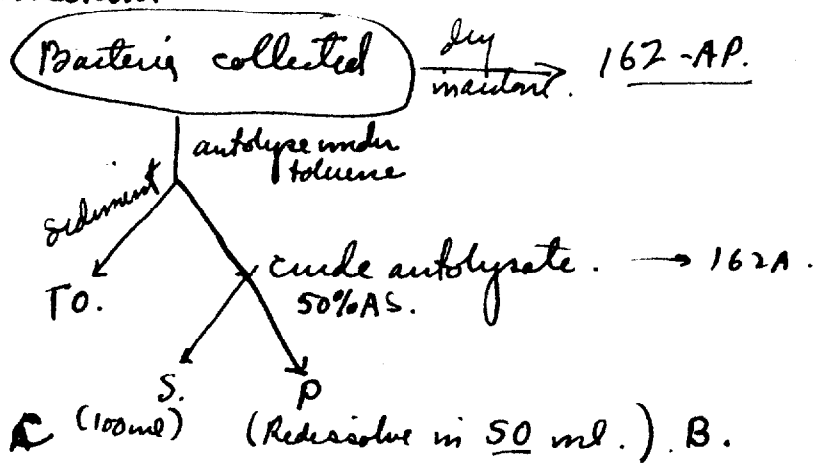 Bacteria collected dry in acetone. 162-AP.
autolyse under
toluene
sediment
TO.
crude autolysate. → 162A.
50% AS.
S. P
C (100ml) (Redissolve in 50 ml.). B.